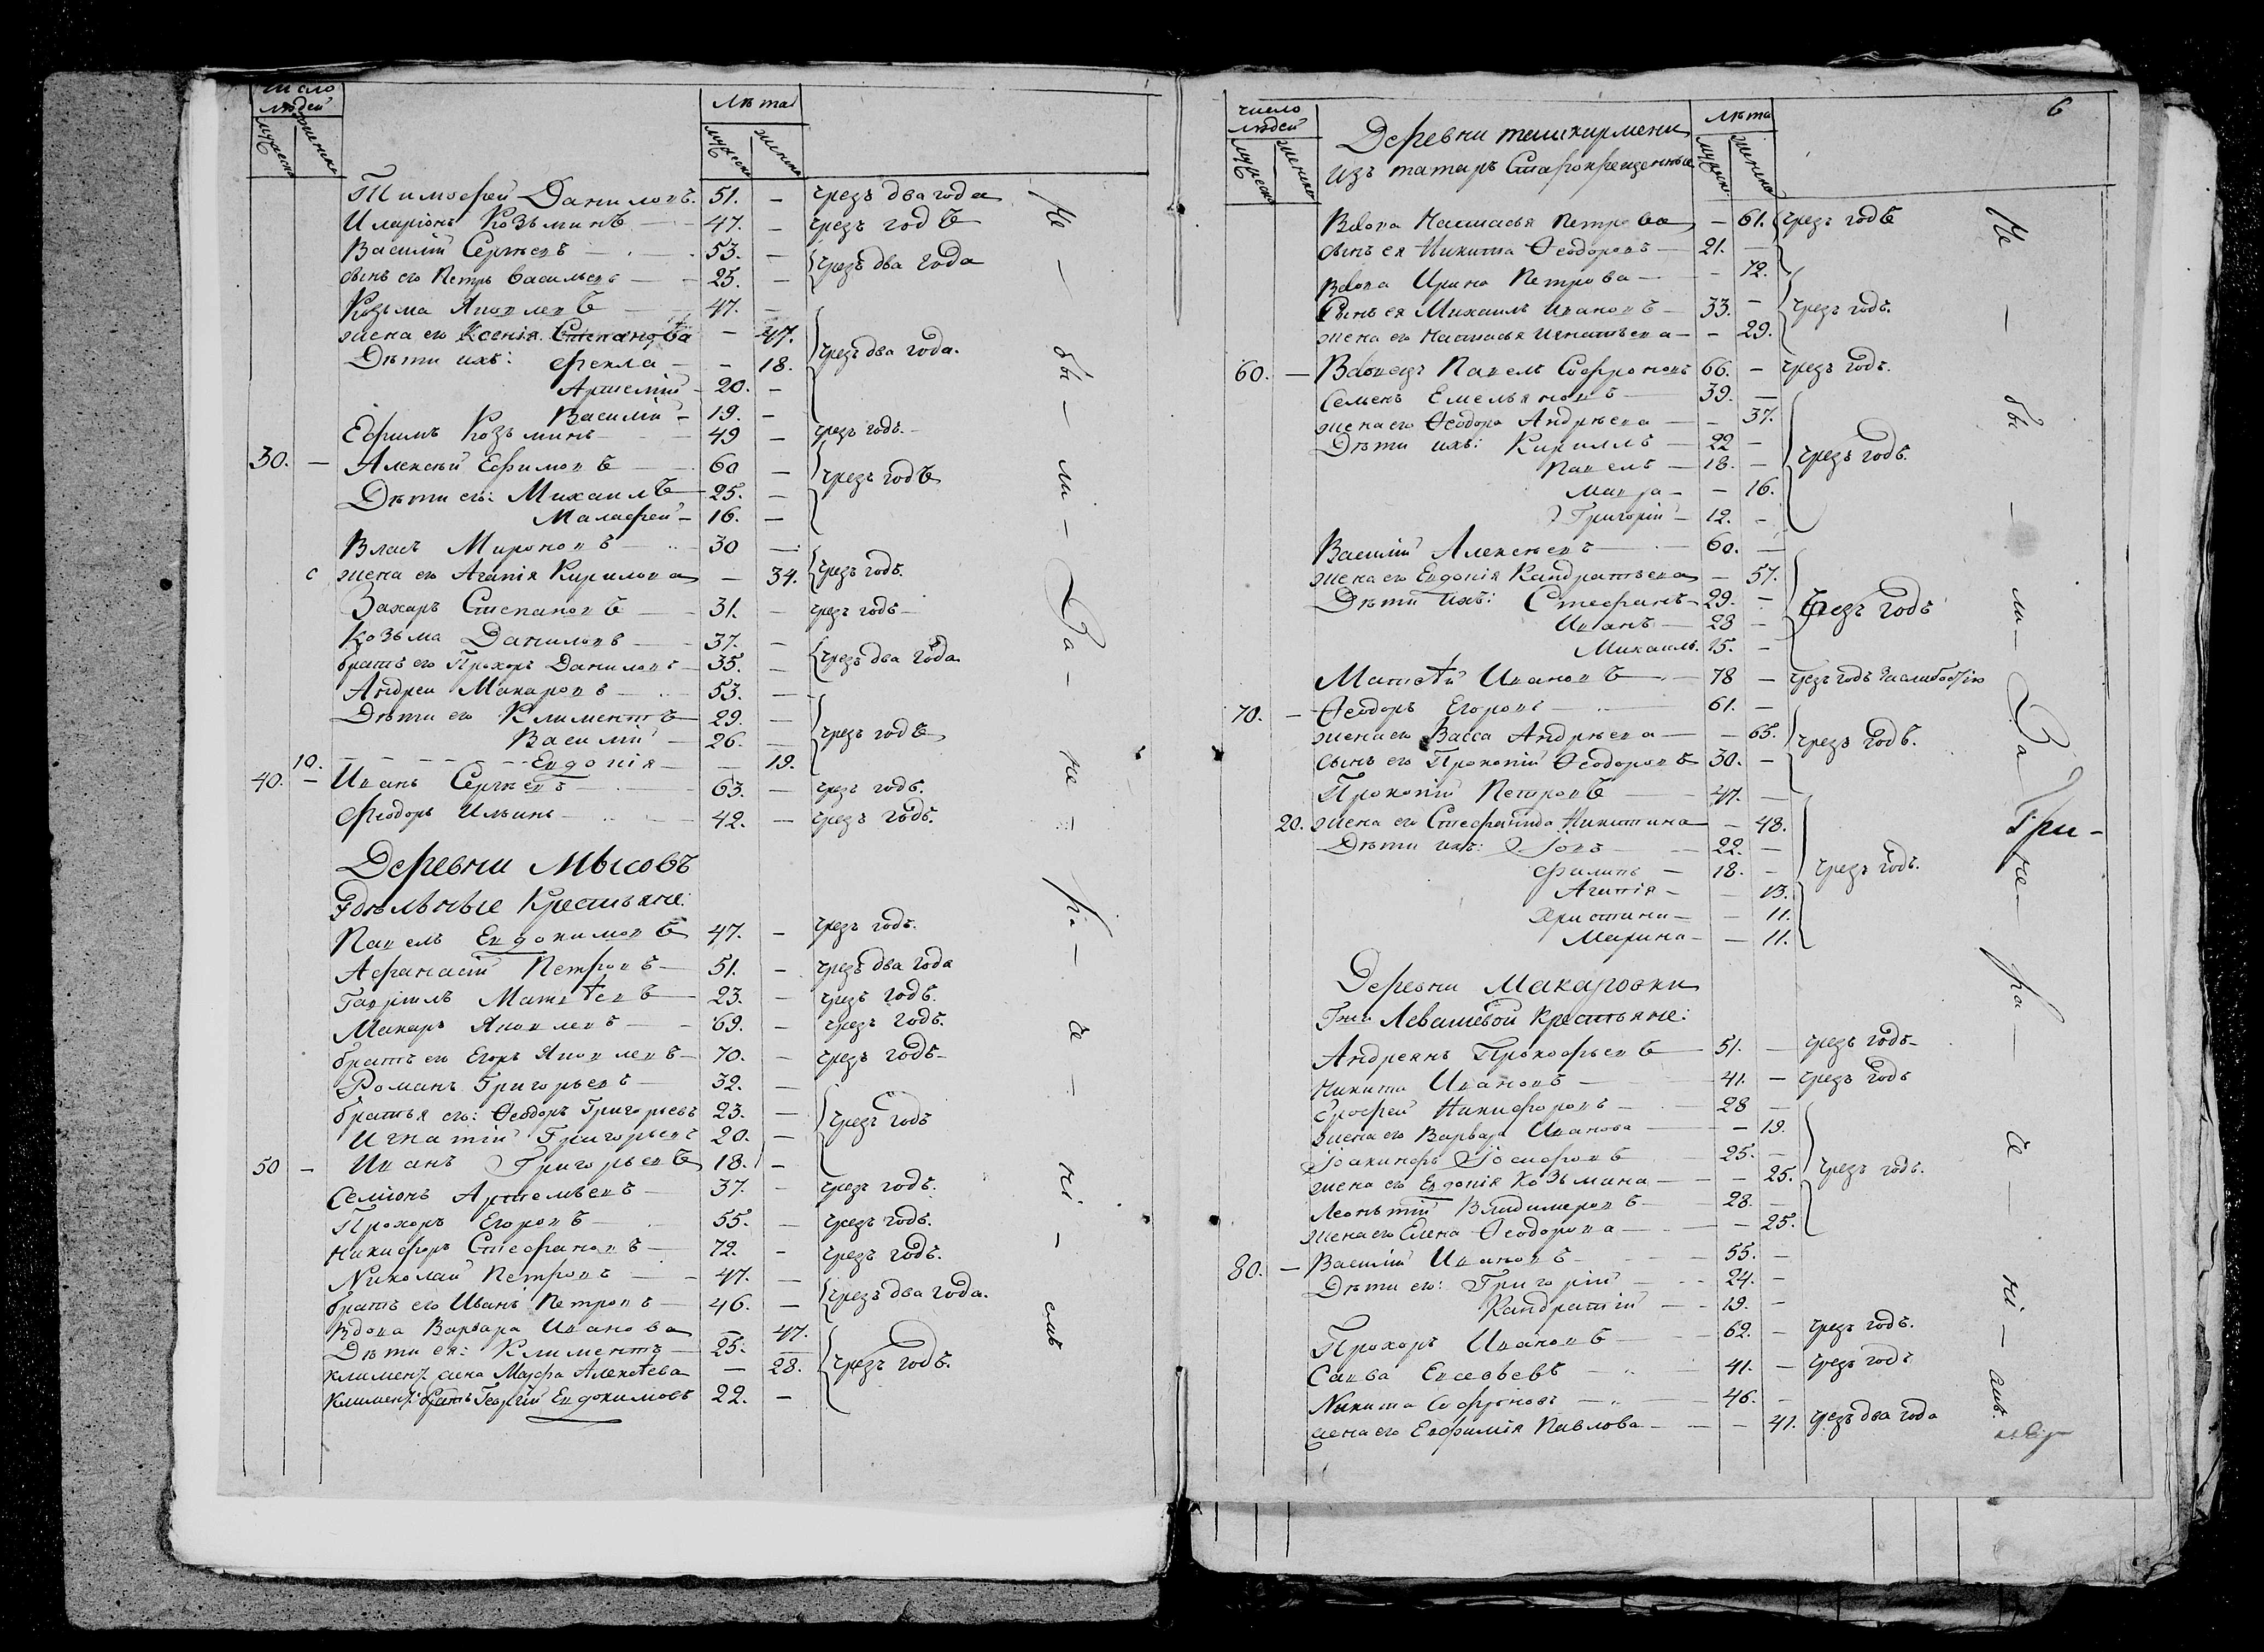 число людей
мужеска
женска
лѣта
мужеска
женска
Тимофей Даниловъ. 51. — чрезъ два года
Иларіонъ Козьминъ — 47. — чрезъ годъ
Василій Сергѣевъ — 53. — чрезъ два года
сынъ его Петръ Васильевъ — 25. —
Козьма Яковлевъ 47. —
жена его Ксенія Степанова — 47.
Дѣти ихъ: Фекла — — 18. чрезъ два года.
Артемій — 20. —
Василій — 19. —
Ефимъ Козьминъ — 49 — чрезъ годъ. —
30. — Алексѣй Ефимовъ — 60 — чрезъ годъ
Дѣти его: Михаилъ — 25. —
Малафей — 16. —
Власъ Мироновъ — 30 —
с жена его Агапія Кирилова — 34. чрезъ годъ.
Захаръ Степановъ — 31. — чрезъ годъ —
Козьма Даниловъ — 37. —
братъ его Прохоръ Даниловъ — 35. — чрезъ два года.
Андрей Макаровъ — 53. —
Дѣти его Климентъ — 29. —
Василій — 26. — чрезъ годъ
10. — Евдокія — — 19.
40. — Иванъ Сергѣевъ — 63. — чрезъ годъ.
Феодоръ Ильинъ — 42. — чрезъ годъ.
Деревни Мысовъ
Удѣльные Крестьяне:
Павелъ Евдокимовъ 47. — чрезъ годъ.
Афанасій Петровъ — 51. — чрезъ два года
Гавріилъ Матѳеевъ — 23. — чрезъ годъ.
Макаръ Яковлевъ — 69. — чрезъ годъ.
братъ его Егоръ Яковлевъ — 70. — чрезъ годъ —
Романъ Григорьевъ — 32. —
братья его: Ѳеодоръ Григорьевъ 23. — чрезъ годъ
Игнатій Григорьевъ 20. —
50 — Иванъ Григорьевъ 18. —
Семіонъ Артемьевъ — 37. — чрезъ годъ.
Прохоръ Егоровъ — 55. — чрезъ годъ.
Никифоръ Стефановъ — 72. — чрезъ годъ.
Николай Петровъ — 47. —
братъ его Иванъ Петровъ — 46. — чрезъ два года.
Вдова Варвара Иванова — 47.
Дѣти ея: Климентъ — 25. —
климен. жена Марфа Алексѣева — 28. чрезъ годъ.
Климен. братъ Георгій Евдокимовъ 22. —
Не — бы — ли — Да — не — ро — че — ні — емъ
6
число людей
мужеска
женска
Деревни ташкирмени
изъ татаръ Старокрещенные
лѣта
мужеска
женска
Вдова Настасья Петрова — 61. чрезъ годъ
сынъ ея Никита Ѳеодоровъ — 21. —
Вдова Ирина Петрова — — 72.
Сынъ ея Михаилъ Ивановъ — 33. — чрезъ годъ.
жена его Настасья Игнатьева — — 29.
60. — Вдовецъ Павелъ Софроновъ 66. — чрезъ годъ.
Семенъ Емельяновъ — 39. —
жена его Ѳеодора Андрѣева — — 37.
Дѣти ихъ: Кириллъ — 22 — чрезъ годъ.
Павелъ — 18. —
Мавра — — 16.
Григорій — 12. —
Василій Алексѣевъ — 60. —
жена его Евдокія Кандратьева — 57.
Дѣти ихъ: Стефанъ — 29. — Чрезъ годъ
Иванъ — 28 —
Михаилъ. 15. —
Матѳей Ивановъ — 78 — чрезъ годъ
70. — Ѳеодоръ Егоровъ — 61. —
жена его Васса Андрѣева — — 65. чрезъ годъ.
сынъ его Прокопій Ѳеодоровъ 30. —
Прокопій Петровъ — 47. —
20. жена его Стефанида Никитина — 48.
Дѣти ихъ: Іовъ — 22. —
Филипъ — 18. — чрезъ годъ.
Агапія — — 13.
Христина — — 11.
Марина — — 11.
Деревни Макаровки
Гжи Левашевой крестьяне:
Андреянъ Прокофьевъ — 51. — чрезъ годъ —
Никита Ивановъ — 41. — чрезъ годъ
Ерофей Никифоровъ — 28 —
жена его Варвара Иванова — — 19.
Іоакинфъ Іосифовъ — 25. — чрезъ годъ.
жена его Евдокія Козьмина — — 25.
Леонтій Владимеровъ — 28. —
жена его Елена Ѳеодорова — — 25.
80. — Василій Ивановъ — 55. —
Дѣти его: Григорій — 24. —
Кандратій — 19. —
Прохоръ Ивановъ — 62. — чрезъ годъ.
Савва Евсевьевъ — 41. — чрезъ годъ
Никита Софроновъ — 46. —
жена его Евфимія Павлова — — 41. чрезъ два года
Не — бы — ли — Да — не — ра — че — ні — емъ.
При —